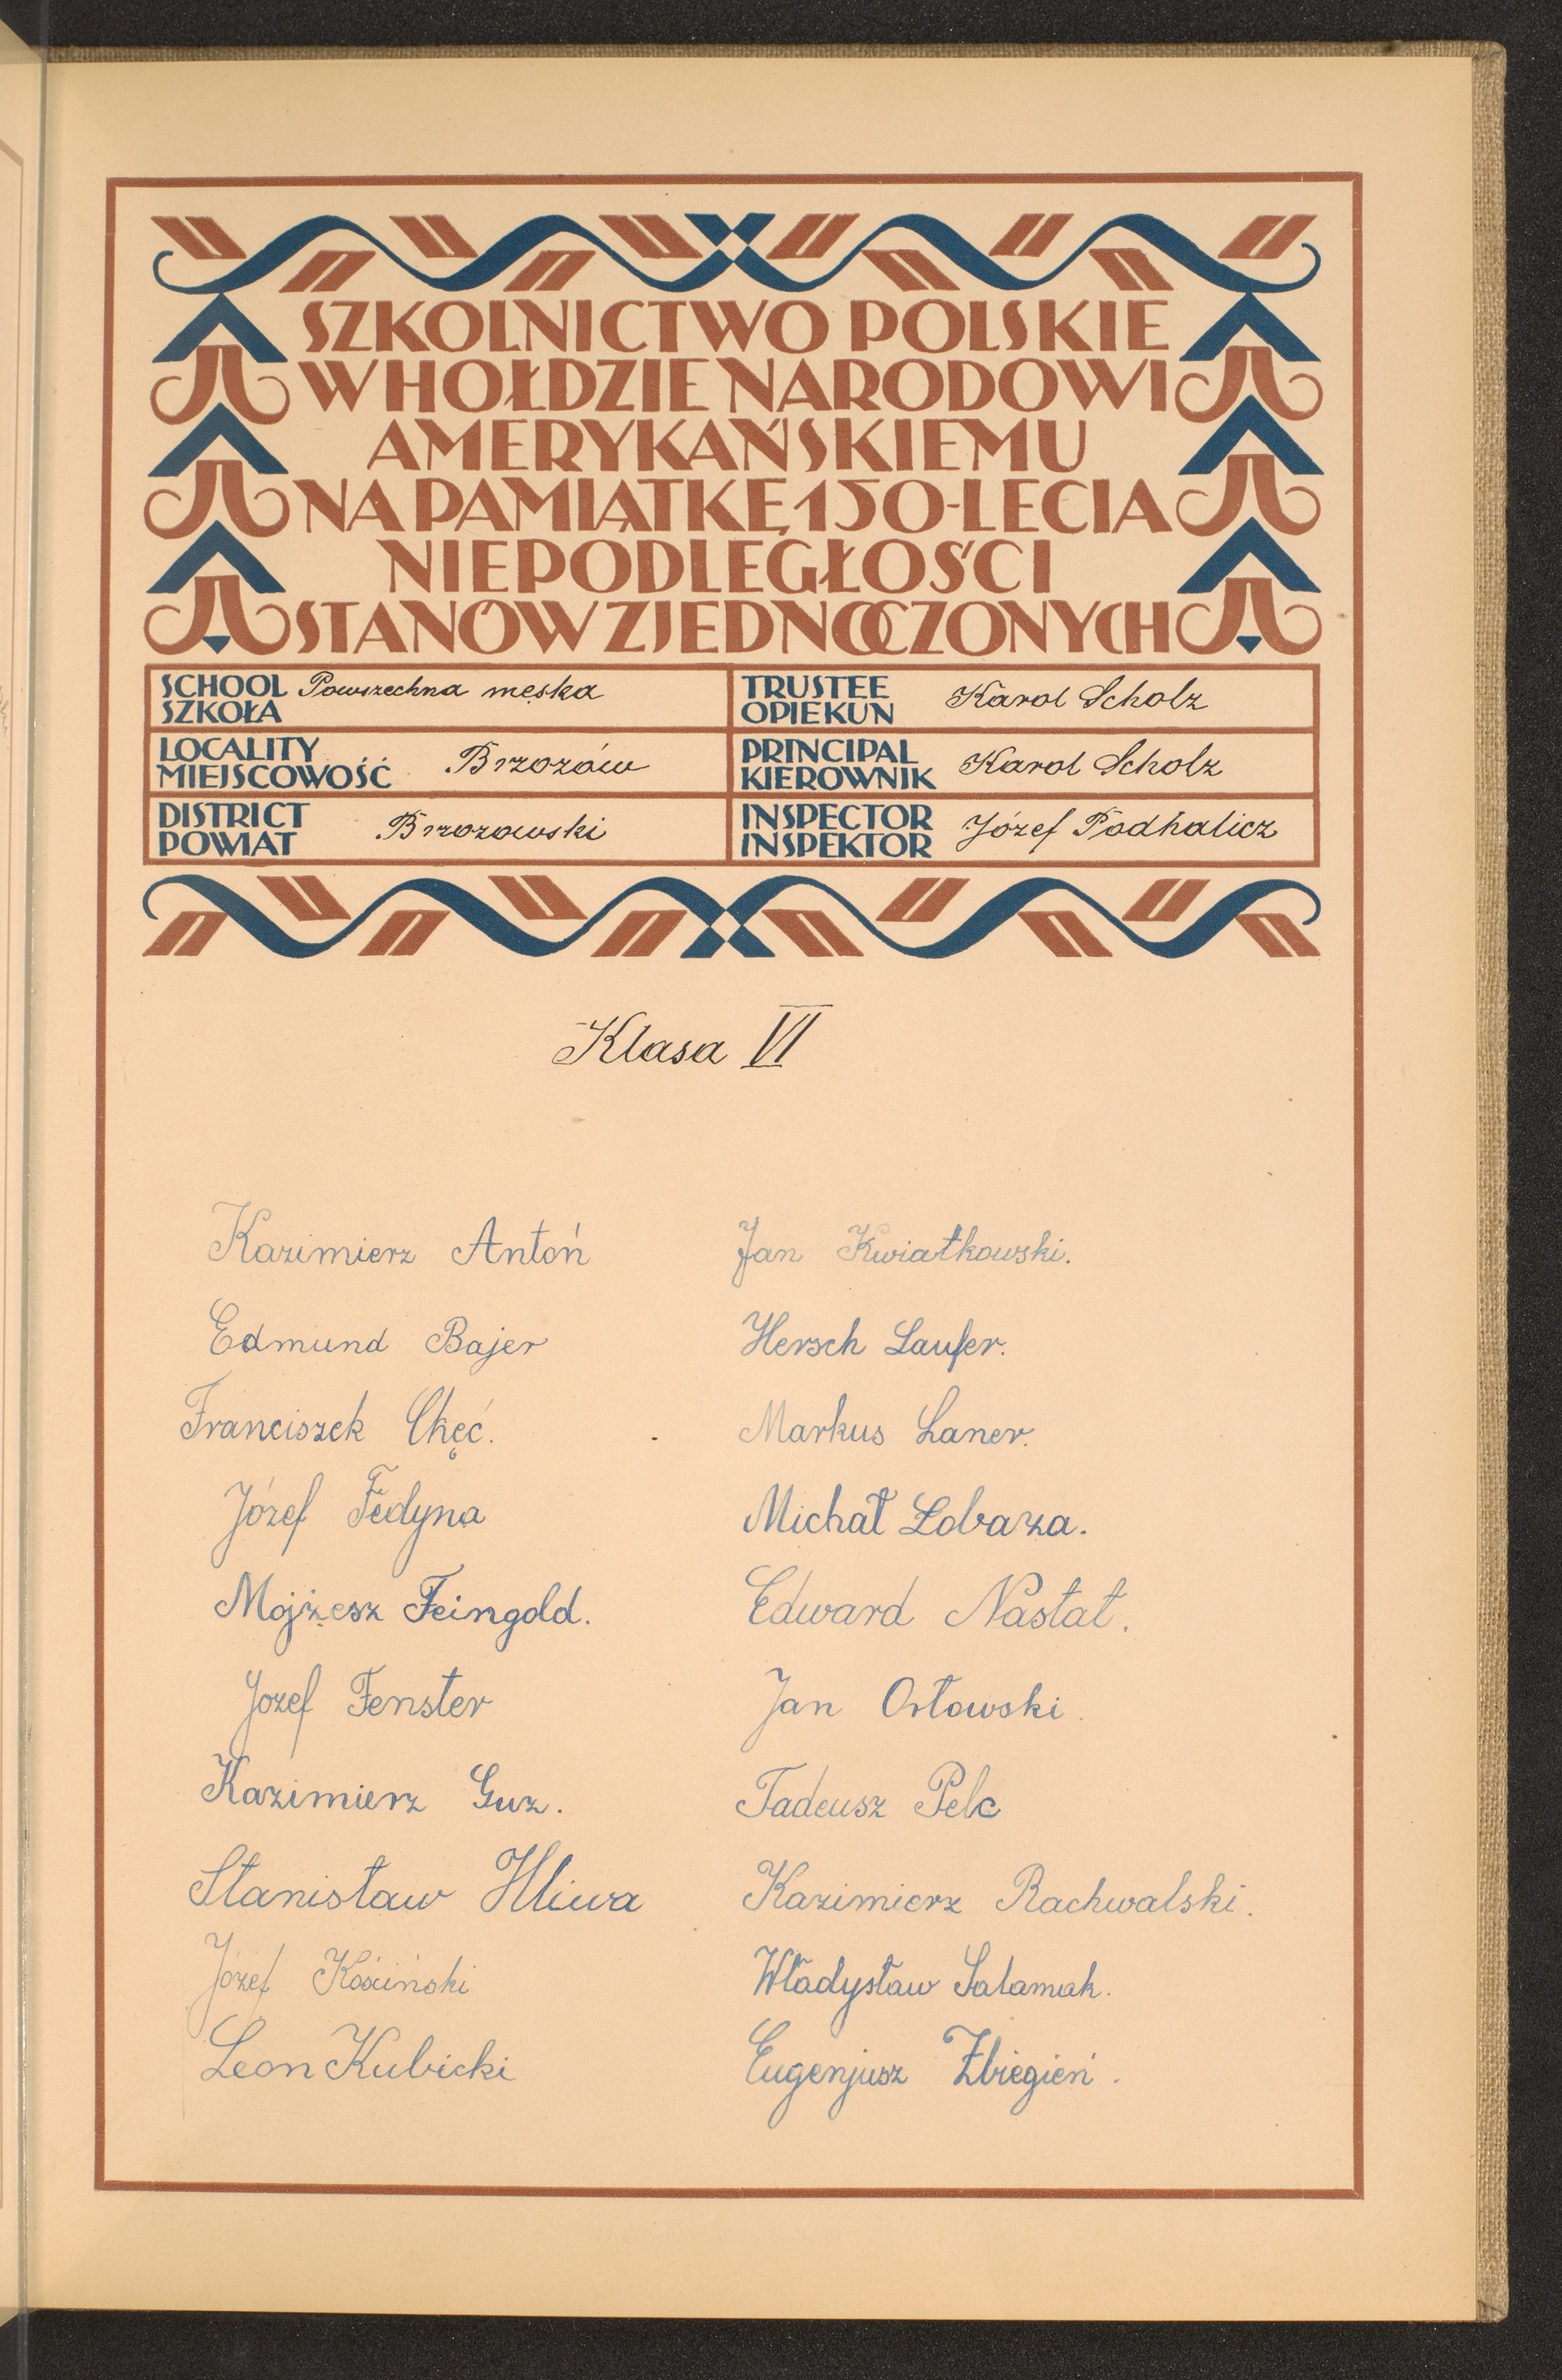 SZKOLNICTWO POLSKIE
W HOŁDZIE NARODOWI
AMERYKAŃSKIEMU
NA PAMIĄTKĘ 150-LECIA
NIEPODLEGŁOŚCI
STANÓW ZJEDNOCZONYCH
SCHOOL SZKOŁA Powszechna męska
TRUSTEE OPIEKUN Karol Scholz
LOCALITY MIEJSCOWOŚĆ Brzozów
PRINCIPAL KIEROWNIK Karol Scholz
DISTRICT POWIAT Brzozowski
INSPECTOR INSPEKTOR Józef Podhalicz
Klasa VI
Kazimierz Antoń
Edmund Bajer
Franciszek Chęć.
Józef Fedyna
Mojżesz Feingold.
Jozef Fenster
Kazimierz Guz.
Stanisław Hliwa
Józef Kościński
Leon Kubicki
Jan Kwiatkowski.
Hersch Laufer.
Markus Laner.
Michał Łobaza.
Edward Nastał.
Jan Orłowski.
Tadeusz Pelc
Kazimierz Rachwalski.
Władysław Salamak.
Eugenjusz Zbiegień.